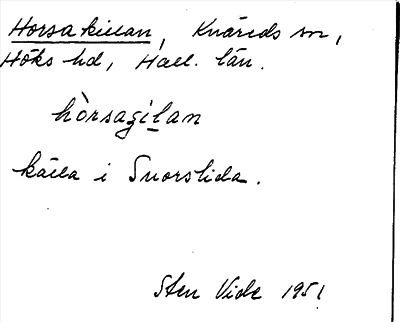 Horsakillan, Knäreds sn,
Höks hd, Hall. län.
hòrsagilan
källa i Snorslida.
Sten Vide 1951